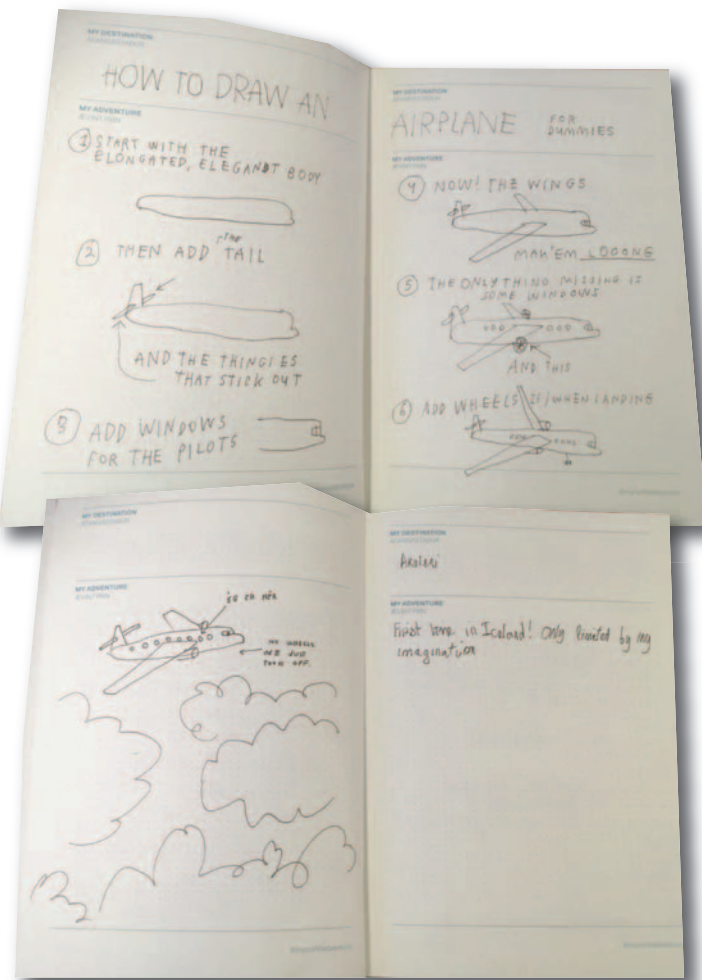 MY DESTINATION
HOW TO DRAW AN
MY ADVENTURE
1 START WITH THE
ELONGATED, ELEGANDT BODY
2 THEN ADD THE TAIL
AND THE THINGIES
THAT STICK OUT
3 ADD WINDOWS
FOR THE PILOTS
MY DESTINATION
AIRPLANE FOR
DUMMIES
MY ADVENTURE
4 NOW! THE WINGS
MAK'EM LOOONG
5 THE ONLY THING MISSING IS
SOME WINDOWS
AND THIS
6 ADD WHEELS IF/WHEN LANDING
MY DESTINATION
MY ADVENTURE
ÉG ER HÉR
NO WHEELS
WE JUST
TOOK OFF.
MY DESTINATION
MY ADVENTURE
First time in Iceland! Only limited by my
imagination